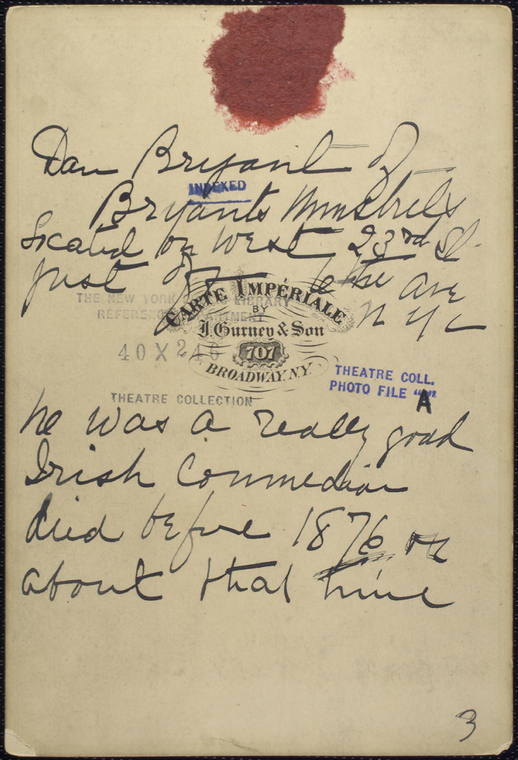 Dan Bryant of
INDEXED
Bryants Minstrels
Located on West 23rd St.
just off 6the ave
N Y C
THE NEW YORK PUBLIC LIBRARY
REFERENCE DEPARTMENT
CARTE IMPÉRIALE
BY
J. Gurney & Son
707
BROADWAY N.Y.
40 X 246
THEATRE COLL.
PHOTO FILE "A"
THEATRE COLLECTION
he was a really good
Irish Commedian
died before 1876 or
about that time
3